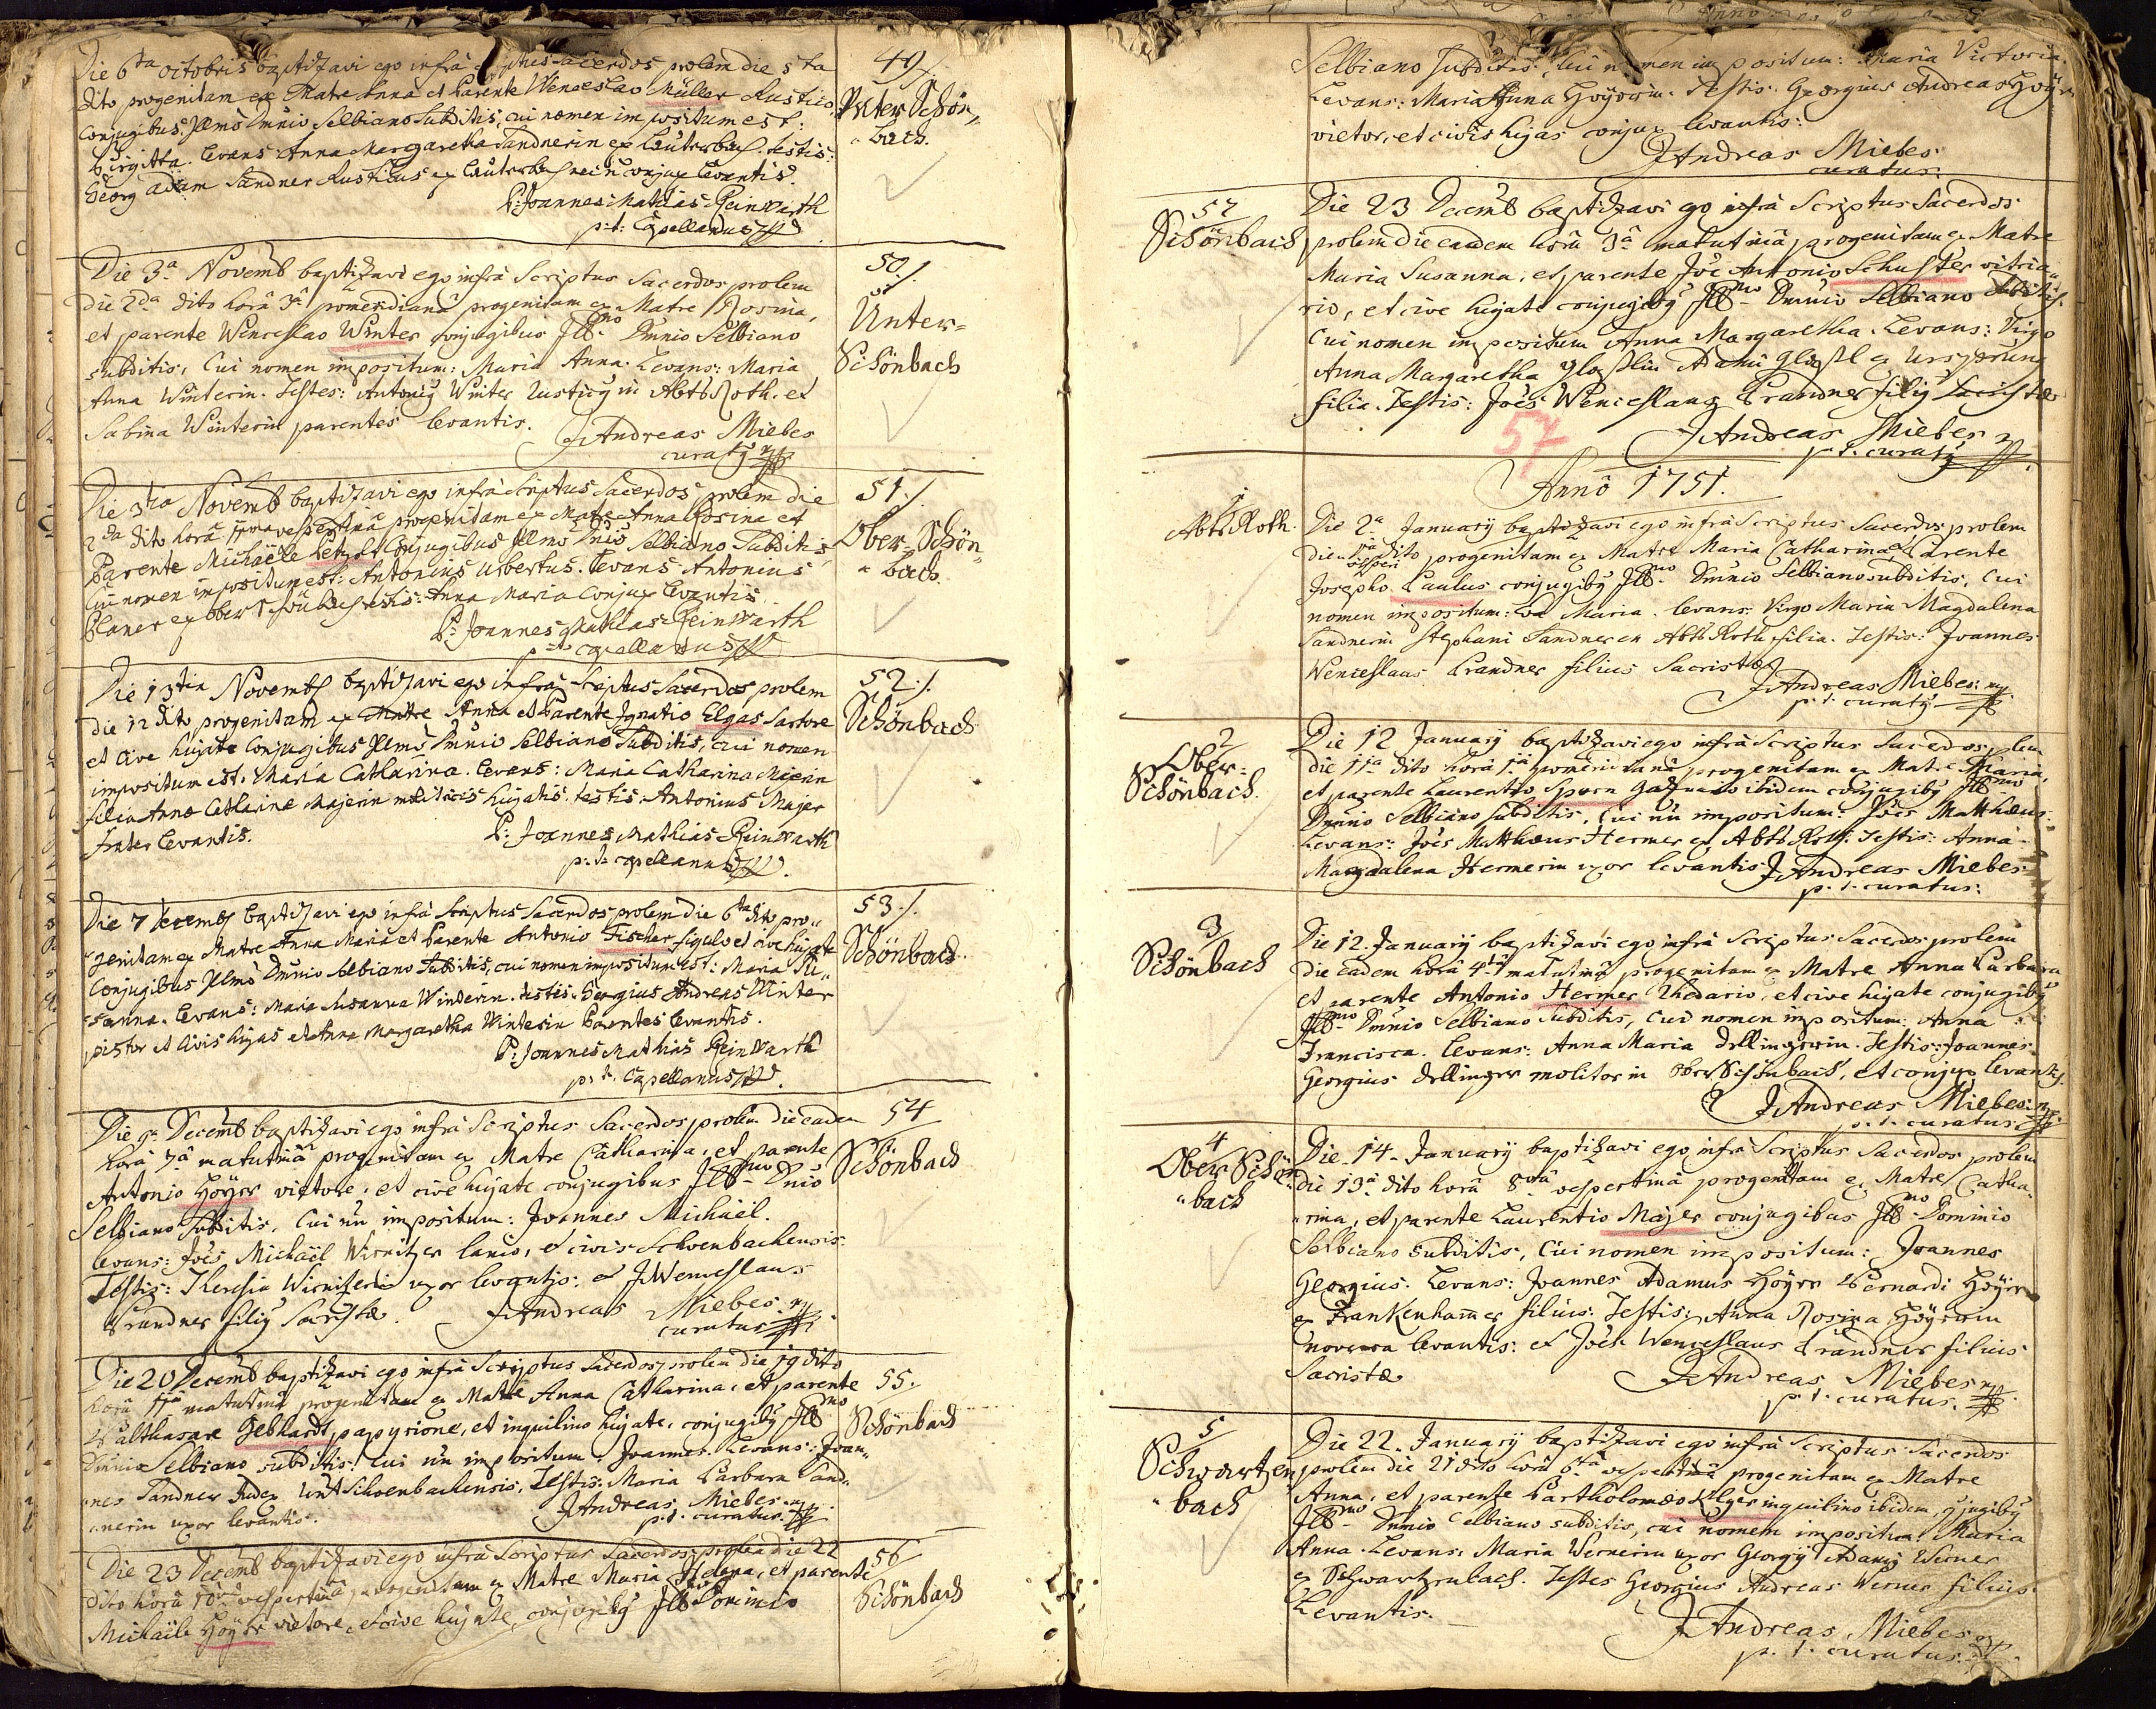 Die 6ta octobris baptizavi ego infrà scriptus sacerdos prolem die 5ta
dito progenitam ex Matre Anna et Parente Wenceslao Müller Rustico
Conjugibus Illmo Dmnio Selbiano Subditis, cui nomen impositum est:
Birgitta. levans Anna Margaretha Sandnerin ex Lauterbach. testis:
Georg Adam Sandner Rusticus ex Lauterbach conjux levantis.
P: Joannes Mathias Reinwarth
p: t: Capellanus
49
Unter Schön„
„bach.
Die 3a Novemb baptizavi ego infrà Scriptus Sacerdos prolem
die 2da dito horâ 3â pomeridianâ progenitam ex Matre Rosina,
et parente Wenceslao Winter conjugibus Ill-mo Dmnio Selbiano
subditis, Cui nomen impositum: Maria Anna. Levans: Maria
Anna Winterin. Testes: Antonig Winter Rusticg in Abtsroth. et
Sabina Winterin parentes levantis.
J Andreas Miebes
curatg
50
Unter=
Schönbach
Die 3tia Novemb baptizavi ego infrà scriptus Sacerdos prolem die
2da dito horâ vespertinâ progenitam ex Matre Anna Rosina et
Parente Michaële Conjugibus Illmo Dnio Selbiano Subditis,
Cui nomen impositum est: Antonius Ubertus. levans Antonius
Planer ex ober Schönbach testis: Anna Maria Conjux levantis
P: Joannes Mathias Reinwarth
p: t: capellanus
51
Ober Schön„
„bach
Die 13tia Novemb baptizavi ego infrà scriptus Sacerdos prolem
die 12 dito progenitam ex Matre Anna et Parente Ignatio Elgas Sartore
et Cive hujate Conjugibus Illmo Dmnio Selbiano Subditis, cui nomen
impositum est: Maria Catharina. levans: Maria Catharina Majerin
filia Annae Catharinae Majerin hujatis. testis: Antonius Majer
frater levantis.
P: Joannes Mathias Reinwarth
p: t: capellanus
52
Schönbach
Die 7 Decemb baptizavi ego infrà scriptus Sacerdos prolem die 6ta dito pro„
„genitam ex Matre Anna Maria et Parente Antonio Fischer figulo et cive hujate
Conjugibus Illmo Dmnio Selbiano Subditis, cui nomen impositum est: Maria Su„
„sanna. levans: Maria Susanna Winterin. testis: Georgius Andreas Winter
pistor et Civis hujas et Anna Margaretha Winterin Parentes levantis.
P: Joannes Mathias Reinwarth
p: t: Capellanus
53
Schönbach
Die 9a Decemb baptizavi ego infrà Scriptus Sacerdos prolem die eadem
horâ 7â matutinâ progenitam ex Matre Catharina, et parente
Antonio Höyer vietore, et cive hujate conjugibus Ill-mo Dnio
Selbiano Subditis, Cui nn impositum: Joannes Michaël.
levans: Joës Michaël Wirnitzer lanio, et civis Schoenbachensis.
Testis: Theresia uxor levantis: et J Wenceslaus
Brandner filig Sacristae.
J Andreas Miebes
curatus
54
Schönbach
Die 20 Decemb baptizavi ego infrà Scriptus Sacerdos prolem die 19 dito
horâ matutinâ progenitam ex Matre Anna Catharina, et parente
Balthasare Gebhardt, papyrione, et inquilino hujate, conjugibg Ill-mo
Dmnio Selbiano subditis: Cui nn impositum: Joannes. Levans: Joan„
„nes Sandner Judex Unt Schoenbachensis, Testis: Maria Barbara Sand„
„nerin uxor levantis.
J Andreas Miebes
p. t. curatus
55
Schönbach
Die 23 Decemb baptizavi ego infrà Scriptus Sacerdos prolem die 22
dito horâ 10mâ vespertinâ progenitam ex Matre Maria Helena, et parente
Michaële Höyer vietore, et cive hujate, conjugibg Ill-mo Dominio
56
Schönbach
Selbiano subditis, cui nomen impositum: Maria Victoria.
Levans: Maria Anna Höyerin. Testis: Georgius Andreas Höyer
vietor, et civis hujas conjux levantis:
J Andreas Miebes
curatus:
57
Schönbach
Die 23 Decemb baptizavi ego infrà Scriptus Sacerdos
prolem die eadem horâ 3â matutinâ progenitam ex Matre
Maria Susanna, et parente Joë Antonio Schuster vitria„
rio, et cive hujate conjugibg Ill-mo Dmnio Selbiano subditis.
Cui nomen impositum Anna Margaretha. Levans: Virgo
Anna Margaretha Glasslin Adami Glassl ex Ursprung
filia. Testis: Joës Wenceslaus Brandner filig Sacristae
J Andreas Miebes
p. t. curatg
57
Anno 1751.
1
Abts Roth.
Die 2a January baptizavi ego infrà Scriptus Sacerdos prolem
die 1ma dito vesperi progenitam ex Matre Maria Catharina et Parente
Josepho Paulus conjugibg Ill-mo Dmnio Selbiano subditis, Cui
nomen impositum: Eva Maria. levans: Virgo Maria Magdalena
Sandnerin Stephani Sandner ex Abts Roth filia. Testis: Joannes
Wenceslaus Brandner filius Sacristae
J Andreas Miebes
p. t. curatg
2
Ober=
Schönbach.
Die 12 January baptizavi ego infrà Scriptus Sacerdos plem
die 11a dito horâ 1â pomeridianâ progenitam ex Matre Maria,
et parente Laurentio ibidem conjugibg Ill-mo
Dmnio Selbiano subditis, Cui nn impositum: Joës Matthaeus.
Levans: Joës Matthaeus Hermer ex Abts Roth. Testis: Anna
Magdalena Hermerin uxor levantis
J Andreas Miebes
p. t. curatus:
3
Schönbach
Die 12. January baptizavi ego infrà Scriptus Sacerdos prolem
die eadem horâ 4tâ matutinâ progenitam ex Matre Anna Barbara
et parente Antonio Hermer Rhedario, et cive hujate conjugibg
Ill-mo Dmnio Selbiano Subditis, Cui nomen impositum: Anna
Francisca. levans: Anna Maria Dellingerin. Testis: Joannes
Georgius Dellinger molitor in ober Schönbach, et conjux levantis.
J Andreas Miebes
p. t. curatus
4
Ober Schön„
„bach
Die 14. January baptizavi ego infrà Scriptus Sacerdos prolem
die 13â dito horâ 8vâ vespertinâ progenitam ex Matre Catha„
„rina, et parente Laurentio Majer conjugibus Ill-mo Dominio
Selbiano subditis, Cui nomen impositum: Joannes
Georgius. Levans: Joannes Adamus Höyer Bernardi Höyer
ex Frankenham̄er filius: Testis: Anna Rosina Höyerin
noverca levantis: et Joës Wenceslaus Brandner filius
Sacristae
J Andreas Miebes
p. t. curatus.
5
Schwartzen„
„bach
Die 22. January baptizavi ego infrà Scriptus Sacerdos
prolem die 21 dito horâ 6tâ vespertinâ progenitam ex Matre
Anna, et parente Bartholomaeo inquilino ibidem, conjugibg
Ill-mo Dmnio Selbiano subditis, cui nomen impositum: Maria
Anna. Levans: Maria Wernerin uxor Georgÿ Adami Werner
ex Schwartzenbach. Testes Georgius Andreas Werner filius
Levantis.
J Andreas Miebes
p. t. curatus.